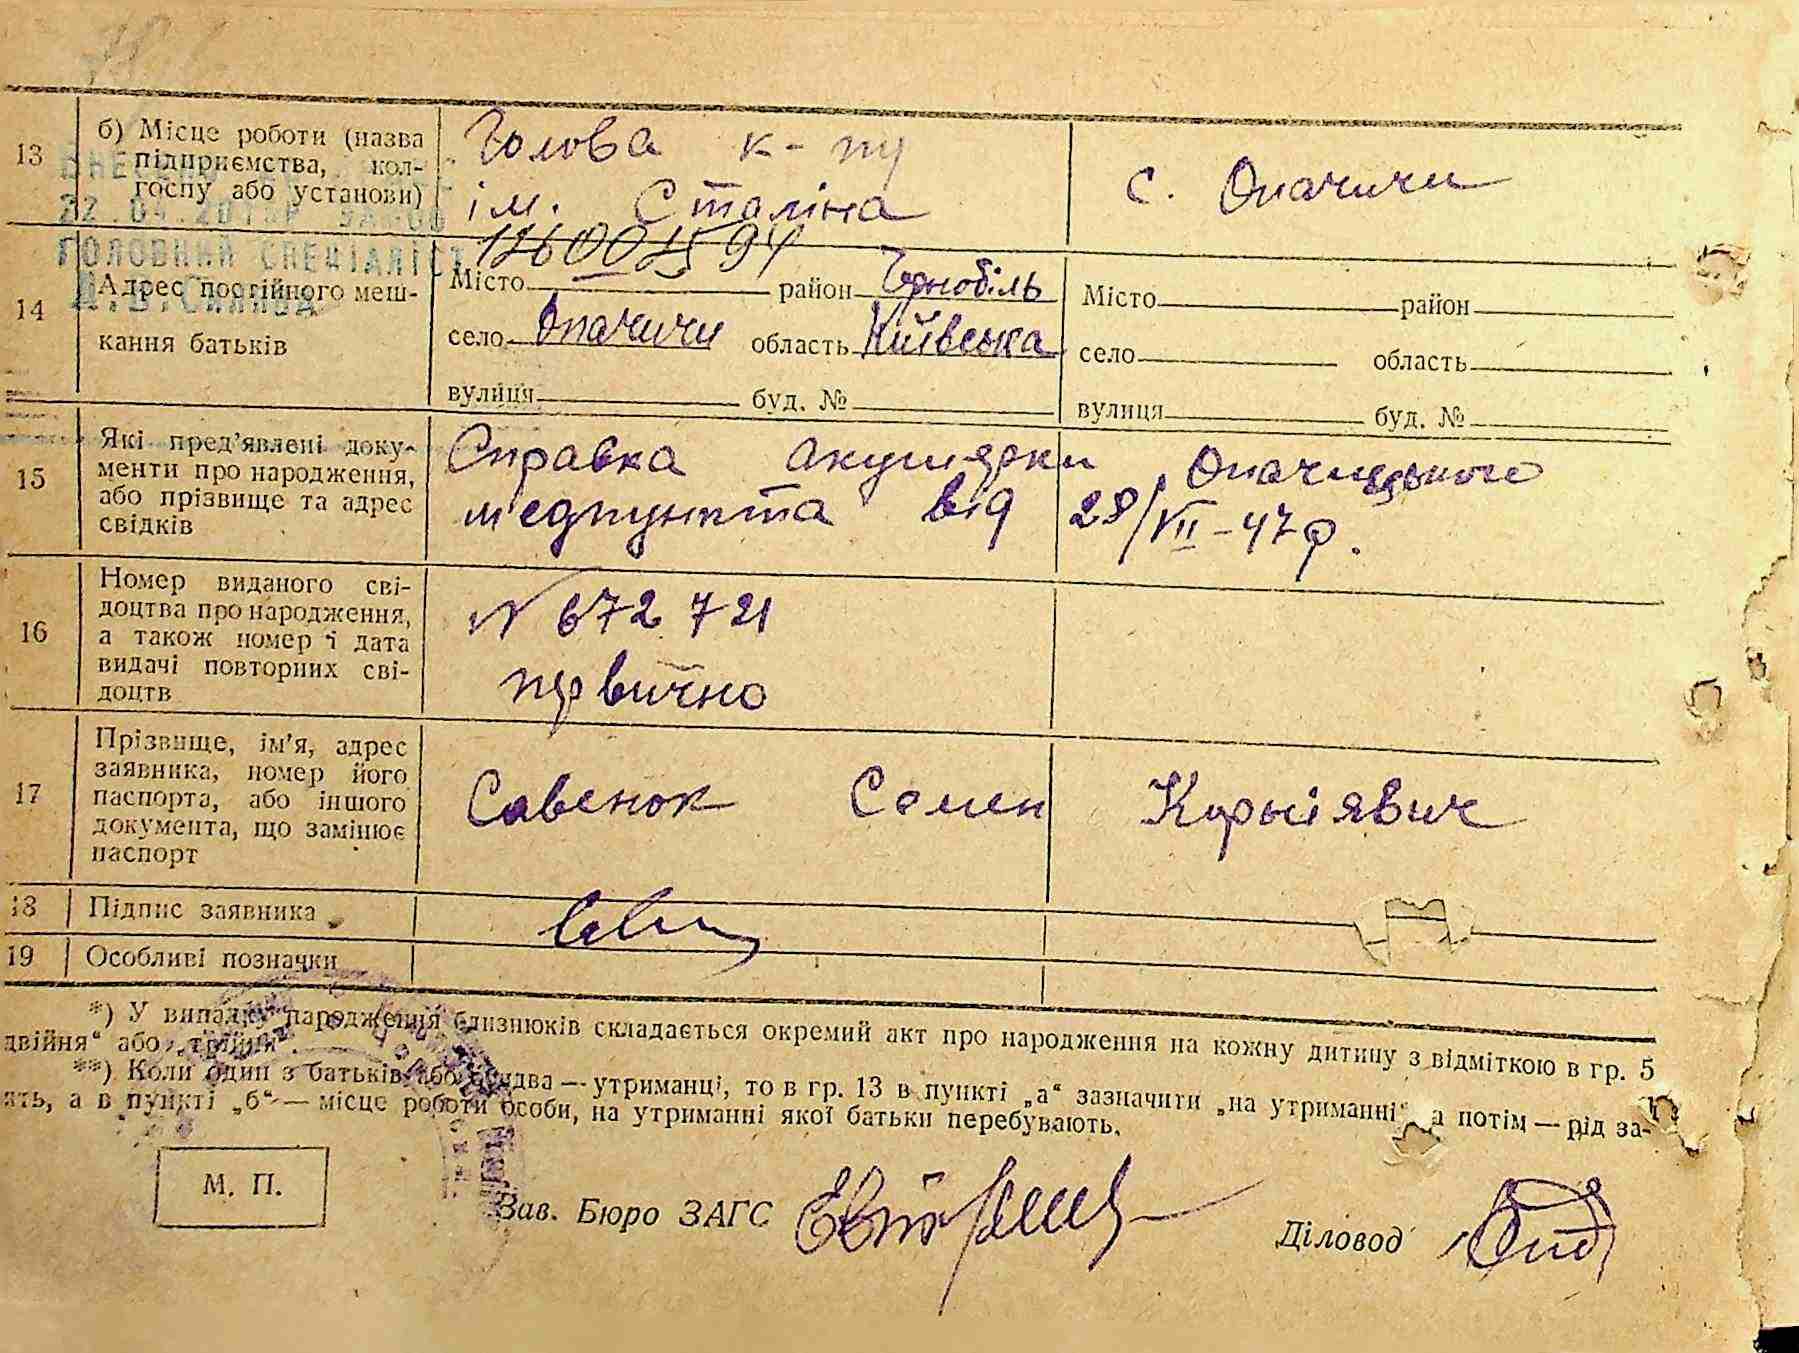 13
б) Місце роботи (назва
підприємства, кол-
госпу або установи)
Голова к-пу
ім. Сталіна
с. Опачичи
22.04.2015р
ГОЛОВНИЙ СПЕЦІАЛІСТ
126001594
14
Адрес постійного меш-
кання батьків
Місто район Чорнобіль
село Опачичи область Київська
вулиця буд. №
Місто район
село область
вулиця буд. №
15
Які пред’явлені доку-
менти про народження,
або прізвище та адрес
свідків
Справка акушярки Опачицького
медпункта від 28/VII-47р.
16
Номер виданого сві-
доцтва про народження,
а також номер і дата
видачі повторних сві-
доцтв
N 672721
первично
17
Прізвище, ім’я, адрес
заявника, номер його
паспорта, або іншого
документа, що замінює
паспорт
Савенок Семен Корніявич
18
Підпис заявника
19
Особливі позначки
*) У випадку народження близнюків складається окремий акт про народження на кожну дитину з відміткою в гр. 5
двійня“ або „трійня“.
**) Коли один з батьків або обидва — утриманці, то в гр. 13 в пункті „а“ зазначити „на утриманні“, а потім — рід за-
ять, а в пункті „б“ — місце роботи особи, на утриманні якої батьки перебувають.
М. П.
Зав. Бюро ЗАГС
Діловод